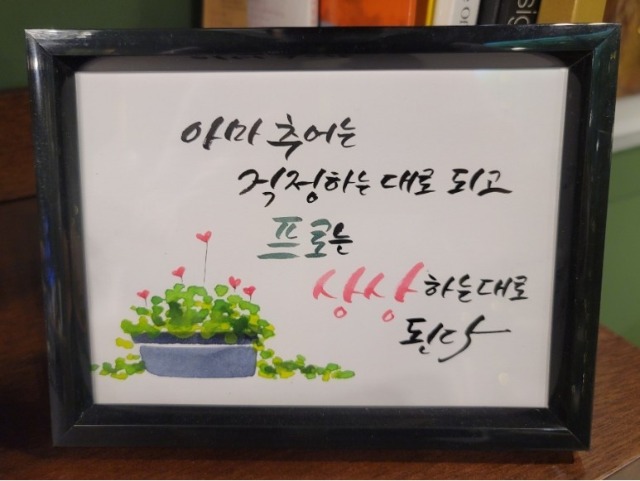 아마추어는
걱정하는대로 되고
프로는
상상하는대로
된다